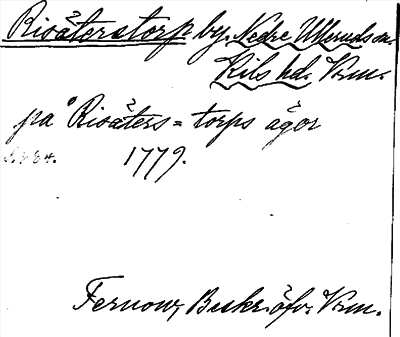 Risäterstorp by, Nedre Ulleruds sn.
Kils hd. Vrm.
på Risäters = torps ägor
1779.
Fernow, Beskr. öfv. Vrm.